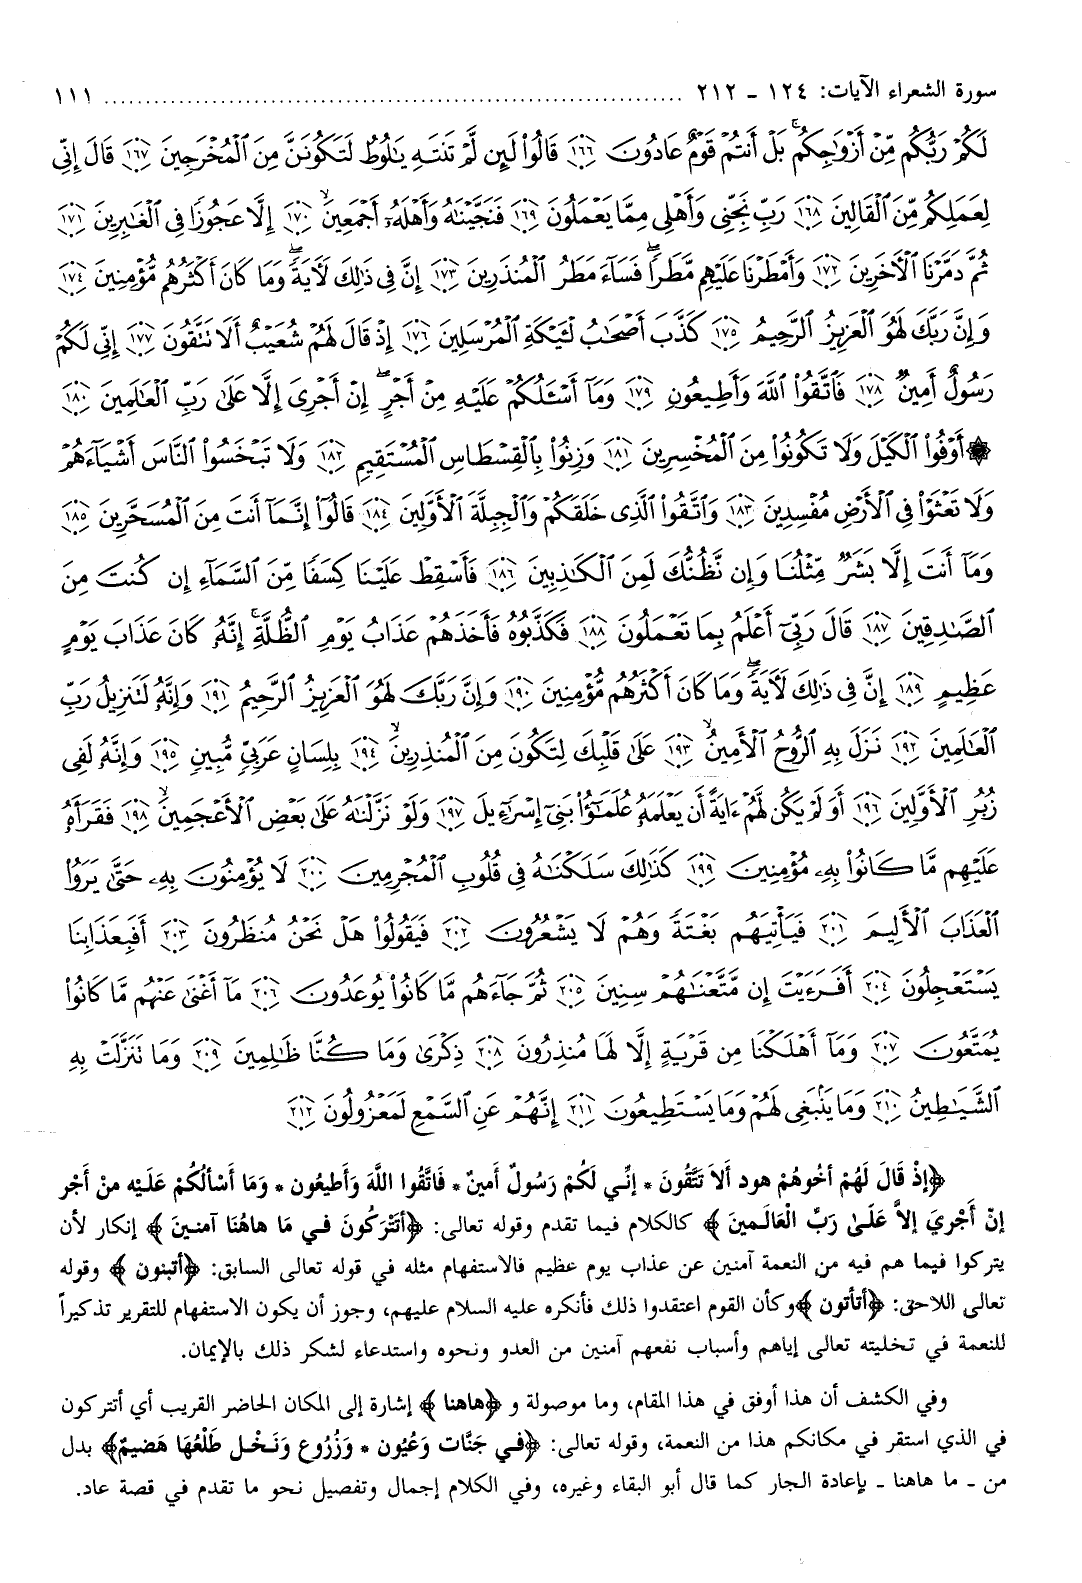 سورة الشعراء الآيات: ١٢٤ ـ ٢١٢ ........................................................ ١١١
لَكُمْ رَبُّكُم مِّنْ أَزْوَاجِكُمْ ۚ بَلْ أَنتُمْ قَوْمٌ عَادُونَ ﴿١٦٦﴾ قَالُوا۟ لَئِن لَّمْ تَنتَهِ يَـٰلُوطُ لَتَكُونَنَّ مِنَ ٱلْمُخْرَجِينَ ﴿١٦٧﴾ قَالَ إِنِّى
لِعَمَلِكُم مِّنَ ٱلْقَالِينَ ﴿١٦٨﴾ رَبِّ نَجِّنِى وَأَهْلِى مِمَّا يَعْمَلُونَ ﴿١٦٩﴾ فَنَجَّيْنَـٰهُ وَأَهْلَهُۥٓ أَجْمَعِينَ ۙ ﴿١٧٠﴾ إِلَّا عَجُوزًا فِى ٱلْغَـٰبِرِينَ ﴿١٧١﴾
ثُمَّ دَمَّرْنَا ٱلْأَخَرِينَ ﴿١٧٢﴾ وَأَمْطَرْنَا عَلَيْهِم مَّطَرًا ۖ فَسَآءَ مَطَرُ ٱلْمُنذَرِينَ ﴿١٧٣﴾ إِنَّ فِى ذَٰلِكَ لَأَيَةً ۖ وَمَا كَانَ أَكْثَرُهُم مُّؤْمِنِينَ ﴿١٧٤﴾
وَإِنَّ رَبَّكَ لَهُوَ ٱلْعَزِيزُ ٱلرَّحِيمُ ﴿١٧٥﴾ كَذَّبَ أَصْحَـٰبُ لْـَٔيْكَةِ ٱلْمُرْسَلِينَ ﴿١٧٦﴾ إِذْ قَالَ لَهُمْ شُعَيْبٌ أَلَا تَتَّقُونَ ﴿١٧٧﴾ إِنِّى لَكُمْ
رَسُولٌ أَمِينٌ ﴿١٧٨﴾ فَٱتَّقُوا۟ ٱللَّهَ وَأَطِيعُونِ ﴿١٧٩﴾ وَمَآ أَسْـَٔلُكُمْ عَلَيْهِ مِنْ أَجْرٍ ۖ إِنْ أَجْرِىَ إِلَّا عَلَىٰ رَبِّ ٱلْعَـٰلَمِينَ ﴿١٨٠﴾
۞ أَوْفُوا۟ ٱلْكَيْلَ وَلَا تَكُونُوا۟ مِنَ ٱلْمُخْسِرِينَ ﴿١٨١﴾ وَزِنُوا۟ بِٱلْقِسْطَاسِ ٱلْمُسْتَقِيمِ ﴿١٨٢﴾ وَلَا تَبْخَسُوا۟ ٱلنَّاسَ أَشْيَآءَهُمْ
وَلَا تَعْثَوْا۟ فِى ٱلْأَرْضِ مُفْسِدِينَ ﴿١٨٣﴾ وَٱتَّقُوا۟ ٱلَّذِى خَلَقَكُمْ وَٱلْجِبِلَّةَ ٱلْأَوَّلِينَ ﴿١٨٤﴾ قَالُوٓا۟ إِنَّمَآ أَنتَ مِنَ ٱلْمُسَحَّرِينَ ﴿١٨٥﴾
وَمَآ أَنتَ إِلَّا بَشَرٌ مِّثْلُنَا وَإِن نَّظُنُّكَ لَمِنَ ٱلْكَـٰذِبِينَ ﴿١٨٦﴾ فَأَسْقِطْ عَلَيْنَا كِسَفًا مِّنَ ٱلسَّمَآءِ إِن كُنتَ مِنَ
ٱلصَّـٰدِقِينَ ﴿١٨٧﴾ قَالَ رَبِّىٓ أَعْلَمُ بِمَا تَعْمَلُونَ ﴿١٨٨﴾ فَكَذَّبُوهُ فَأَخَذَهُمْ عَذَابُ يَوْمِ ٱلظُّلَّةِ ۚ إِنَّهُۥ كَانَ عَذَابَ يَوْمٍ
عَظِيمٍ ﴿١٨٩﴾ إِنَّ فِى ذَٰلِكَ لَأَيَةً ۖ وَمَا كَانَ أَكْثَرُهُم مُّؤْمِنِينَ ﴿١٩٠﴾ وَإِنَّ رَبَّكَ لَهُوَ ٱلْعَزِيزُ ٱلرَّحِيمُ ﴿١٩١﴾ وَإِنَّهُۥ لَتَنزِيلُ رَبِّ
ٱلْعَـٰلَمِينَ ﴿١٩٢﴾ نَزَلَ بِهِ ٱلرُّوحُ ٱلْأَمِينُ ۙ ﴿١٩٣﴾ عَلَىٰ قَلْبِكَ لِتَكُونَ مِنَ ٱلْمُنذِرِينَ ۙ ﴿١٩٤﴾ بِلِسَانٍ عَرَبِىٍّ مُّبِينٍ ﴿١٩٥﴾ وَإِنَّهُۥ لَفِى
زُبُرِ ٱلْأَوَّلِينَ ﴿١٩٦﴾ أَوَلَمْ يَكُن لَّهُمْ ءَايَةً أَن يَعْلَمَهُۥ عُلَمَـٰٓؤُا۟ بَنِىٓ إِسْرَٰٓءِيلَ ﴿١٩٧﴾ وَلَوْ نَزَّلْنَـٰهُ عَلَىٰ بَعْضِ ٱلْأَعْجَمِينَ ۙ ﴿١٩٨﴾ فَقَرَأَهُۥ
عَلَيْهِم مَّا كَانُوا۟ بِهِۦ مُؤْمِنِينَ ﴿١٩٩﴾ كَذَٰلِكَ سَلَكْنَـٰهُ فِى قُلُوبِ ٱلْمُجْرِمِينَ ﴿٢٠٠﴾ لَا يُؤْمِنُونَ بِهِۦ حَتَّىٰ يَرَوُا۟
ٱلْعَذَابَ ٱلْأَلِيمَ ﴿٢٠١﴾ فَيَأْتِيَهُم بَغْتَةً وَهُمْ لَا يَشْعُرُونَ ﴿٢٠٢﴾ فَيَقُولُوا۟ هَلْ نَحْنُ مُنظَرُونَ ﴿٢٠٣﴾ أَفَبِعَذَابِنَا
يَسْتَعْجِلُونَ ﴿٢٠٤﴾ أَفَرَءَيْتَ إِن مَّتَّعْنَـٰهُمْ سِنِينَ ﴿٢٠٥﴾ ثُمَّ جَآءَهُم مَّا كَانُوا۟ يُوعَدُونَ ﴿٢٠٦﴾ مَآ أَغْنَىٰ عَنْهُم مَّا كَانُوا۟
يُمَتَّعُونَ ﴿٢٠٧﴾ وَمَآ أَهْلَكْنَا مِن قَرْيَةٍ إِلَّا لَهَا مُنذِرُونَ ﴿٢٠٨﴾ ذِكْرَىٰ وَمَا كُنَّا ظَـٰلِمِينَ ﴿٢٠٩﴾ وَمَا تَنَزَّلَتْ بِهِ
ٱلشَّيَـٰطِينُ ﴿٢١٠﴾ وَمَا يَنۢبَغِى لَهُمْ وَمَا يَسْتَطِيعُونَ ﴿٢١١﴾ إِنَّهُمْ عَنِ ٱلسَّمْعِ لَمَعْزُولُونَ ﴿٢١٢﴾
﴿إِذْ قَالَ لَهُمْ أَخُوهُمْ هود أَلاَ تَتَّقُونَ * إِنِّي لَكُمْ رَسُولٌ أَمينٌ * فَاتَّقُوا اللَّهَ وَأَطيعُون * وَمَا أَسْأَلُكُمْ عَلَيْه منْ أَجْر
إنْ أَجْريَ إلاَّ عَلَىٰ رَبِّ الْعَالَمينَ ﴾ كالكلام فيما تقدم وقوله تعالى: ﴿أَتُتْرَكُونَ في مَا هاهُنَا آمنينَ ﴾ إنكار لأن
يتركوا فيما هم فيه من النعمة آمنين عن عذاب يوم عظيم فالاستفهام مثله في قوله تعالى السابق: ﴿أتبنون ﴾ وقوله
تعالى اللاحق: ﴿أتأتون ﴾ وكأن القوم اعتقدوا ذلك فأنكره عليه السلام عليهم، وجوز أن يكون الاستفهام للتقرير تذكيراً
للنعمة في تخليته تعالى إياهم وأسباب نفعهم آمنين من العدو ونحوه واستدعاء لشكر ذلك بالإيمان.
وفي الكشف أن هذا أوفق في هذا المقام، وما موصولة و ﴿هاهنا ﴾ إشارة إلى المكان الحاضر القريب أي أتتركون
في الذي استقر في مكانكم هذا من النعمة، وقوله تعالى: ﴿في جَنَّات وَعُيُون * وَزُرُوع وَنَخْل طَلْعُهَا هَضيمٌ﴾ بدل
من ـ ما هاهنا ـ بإعادة الجار كما قال أبو البقاء وغيره، وفي الكلام إجمال وتفصيل نحو ما تقدم في قصة عاد.